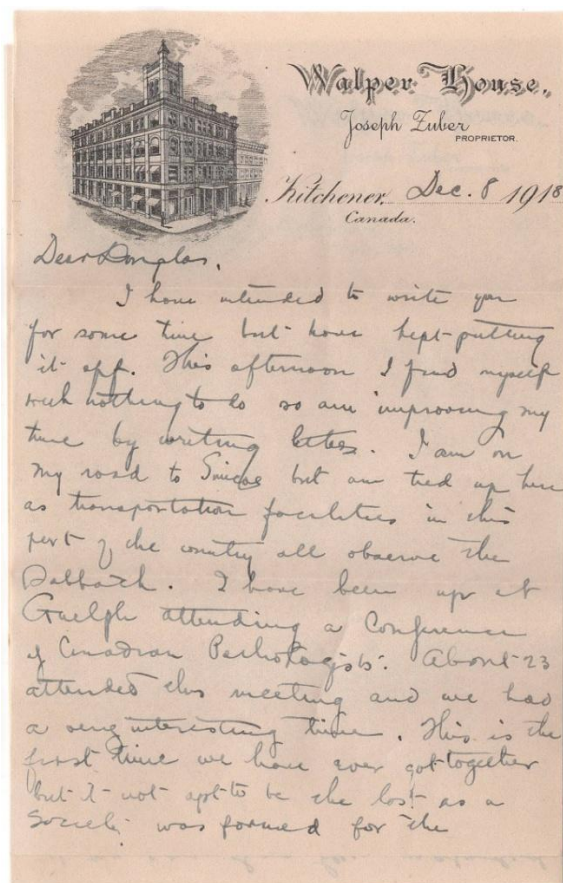 Walper House.
Joseph Zuber
PROPRIETOR.
Kitchener, Dec. 8 1918
Canada.
Dear Douglas,
I have intended to write you
for some time but have kept putting
it off. This afternoon I find myself
with nothing to do so am improving my
time by writing letters. I am on
my road to Simcoe but am tied up here
as transportation facilities in this
part of the country all observe the
Sabbath. I have been up at
Guelph attending a Conference
of Canadian Pathologists. About 23
attended this meeting and we had
a very interesting time. This is the
first time we have ever got together
but it not apt to be the last as a
Society was formed for the